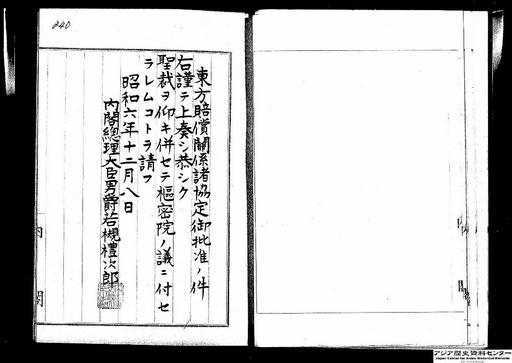 240
東方賠償關係諸協定御批准ノ件
右謹テ上奏シ恭シク
聖裁ヲ仰キ併セテ樞密院ノ議ニ付セ
ラレムコトヲ請フ
昭和六年十二月八日
內閣總理大臣男爵若槻禮次郎
內閣
アジア歴史資料センター
Japan Center for Asian Historical Records